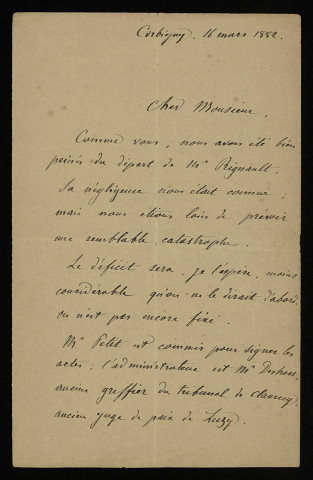 Corbigny, 16 mars 1882.
Cher Monsieur,
Comme vous, nous avons été bien
peinés du départ de Mr Regnault.
Sa négligence nous était connue,
mais nous étions loin de prévoir
une semblable catastrophe.
Le déficit sera, je l'espère, moins
considérable qu'on ne le disait d'abord.
Il n'est pas encore fixé.
Mr Petit est commis pour signer les
actes ; l'administrateur est Mr
ancien greffier du tribunal de Clamecy,
ancien juge de paix de Luzy.